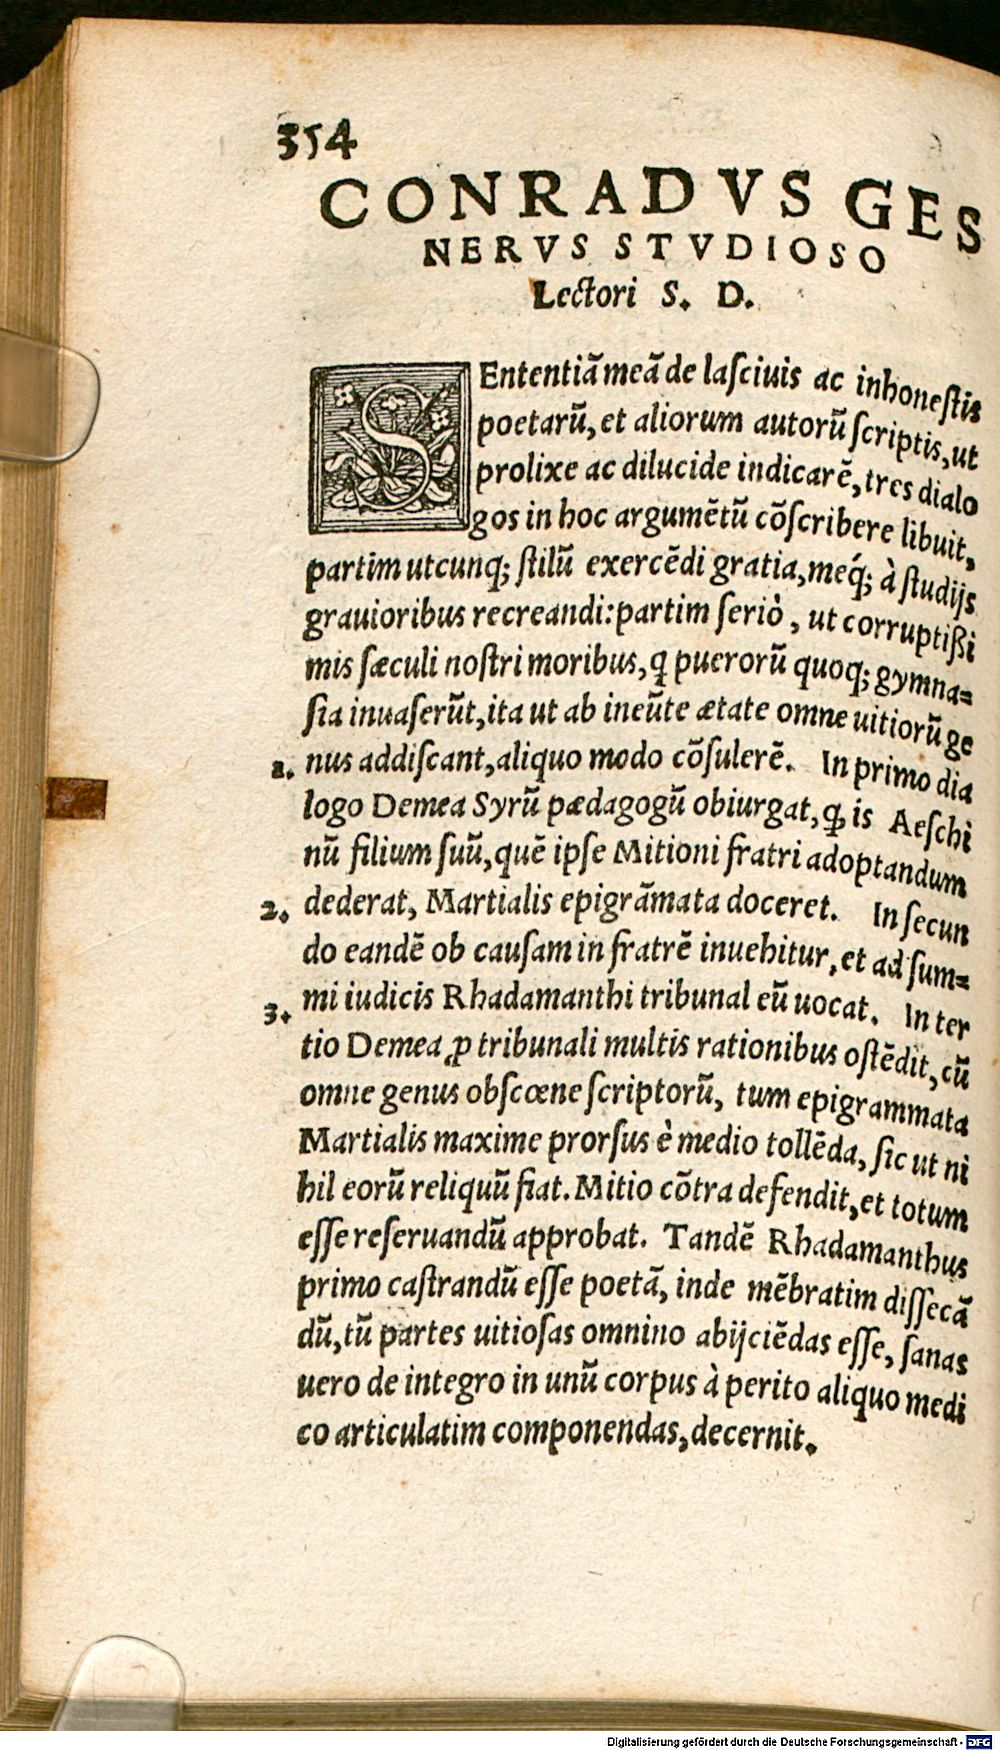 354
CONRADVS GES
NERVS STVDIOSO
Lectori S. D.
SEntentiã meã de laſciuis ac inhoneſtis
poetarũ, et aliorum autorũ ſcriptis, ut
prolixe ac dilucide indicarẽ, tres dialo
gos in hoc argumẽtũ cõſcribere libuit,
partim utcunq; ſtilũ exercẽdi gratia, meq́; à ſtudijs
grauioribus recreandi: partim ſeriò, ut corruptißi
mis ſæculi noſtri moribus, ꝗ puerorũ quoq; gymna=
ſia inuaſerũt, ita ut ab ineũte ætate omne uitiorũ ge
1. nus addiſcant, aliquo modo cõſulerẽ. In primo dia
logo Demea Syrũ pædagogũ obiurgat, ꝙ is Aeſchi
nũ filium ſuũ, quẽ ipſe Mitioni fratri adoptandum
2. dederat, Martialis epigrãmata doceret. In ſecun
do eandẽ ob cauſam in fratrẽ inuehitur, et ad ſum=
3. mi iudicis Rhadamanthi tribunal eũ uocat. In ter
tio Demea ꝓ tribunali multis rationibus oſtẽdit, cũ
omne genus obſcœne ſcriptorũ, tum epigrammata
Martialis maxime prorſus è medio tollẽda, ſic ut ni
hil eorũ reliquũ fiat. Mitio cõtra defendit, et totum
eſſe reſeruandũ approbat. Tandẽ Rhadamanthus
primo caſtrandũ eſſe poetã, inde mẽbratim diſſecã
dũ, tũ partes uitioſas omnino abijciẽdas eſſe, ſanas
uero de integro in unũ corpus à perito aliquo medi
co articulatim componendas, decernit.
Digitalisierung gefördert durch die Deutsche Forschungsgemeinschaft - DFG